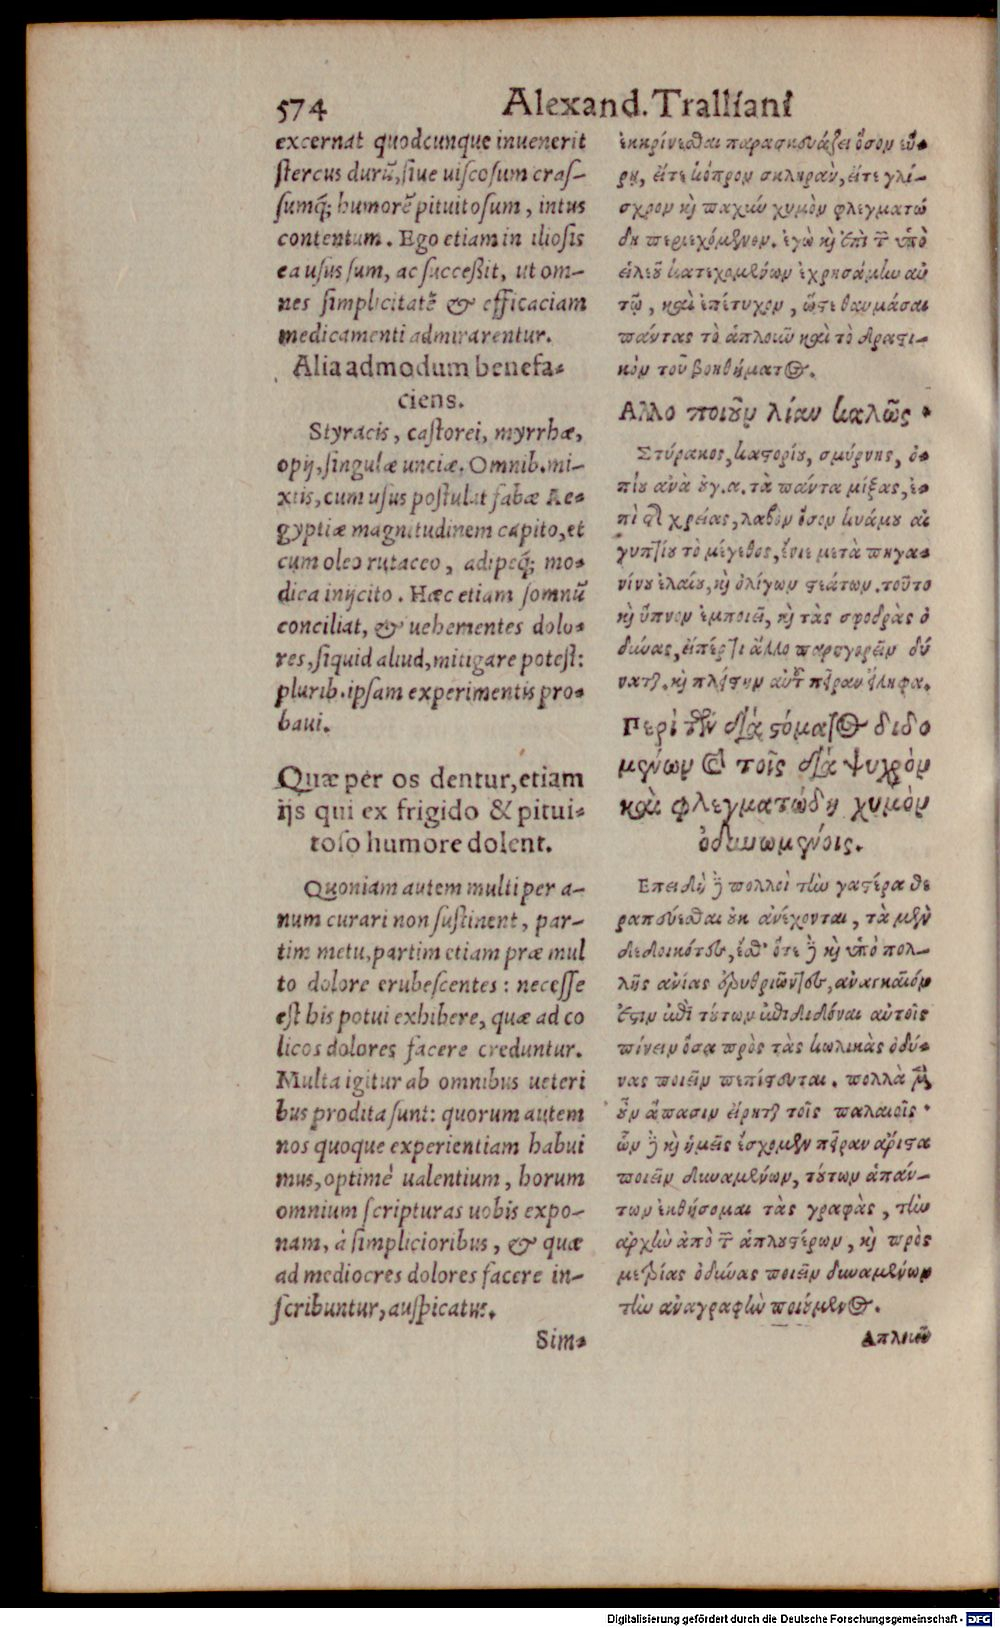 574 Alexand. Tralliani
excernat quodcunque inuenerit
stercus durũ, siue uiscosum cras-
sumq́; humorẽ pituitosum, intus
contentum. Ego etiam in iliosis
ea usus sum, ac successit, ut om-
nes simplicitatẽ & efficaciam
medicamenti admirarentur.
Alia admodum benefa-
ciens.
Styracis, castorei, myrrhæ,
opij, singulæ unciæ. Omnib. mi-
xtis, cum usus postulat fabæ Ae-
gyptiæ magnitudinem capito, et
cum oleo rutaceo, adipeq́; mo-
dica inijcito. Hæc etiam somnũ
conciliat, & uehementes dolo-
res, siquid aliud, mitigare potest:
plurib. ipsam experimentis pro-
baui.
Quæ per os dentur, etiam
ijs qui ex frigido & pitui-
toso humore dolent.
Quoniam autem multi per a-
num curari non sustinent, par-
tim metu, partim etiam præ mul
to dolore erubescentes: necesse
est his potui exhibere, quæ ad co
licos dolores facere creduntur.
Multa igitur ab omnibus ueteri
bus prodita sunt: quorum autem
nos quoque experientiam habui
mus, optimè ualentium, horum
omnium scripturas uobis expo-
nam, à simplicioribus, & quæ
ad mediocres dolores facere in-
scribuntur, auspicatus.
Sim-
ἐκκρίνεσθαι παρασκευάζει ὅσον εὕ-
ρῃ, εἴτε κόπρον σκληρὰν, εἴτε γλί-
σχρον κὶ παχὺν χυμὸν φλεγματώ
δη περιεχόμενον. ἐγὼ κὶ ἐπὶ τ͂ ὑπὸ
εἰλεοῦ κατεχομένων ἐχρησάμην αὐ
τῷ, καὶ ἐπέτυχον, ὥστε θαυμάσαι
πάντας τὸ ἁπλοῦν καὶ τὸ δραστι-
κὸν τοῦ βοηθήματος.
Αλλο ποιοῦν λίαν καλῶς.
Στύρακος, καστορίου, σμύρνης, ὀ-
πίου ἀνὰ οὐγ. α. τὰ πάντα μίξας, ἐ-
πὶ τ͂ χρείας, λαβὼν ὅσον κυάμου αἰ
γυπτίου τὸ μέγεθος, ἔνιε μετὰ πηγα-
νίνου ἐλαίου, κὶ ὀλίγων στεάτων. τοῦτο
κὶ ὕπνον ἐμποιεῖ, κὶ τὰς σφοδρὰς ὀ
δύνας, εἴπέρ τι ἄλλο παρηγορεῖν δύ
ναται. κὶ πλείστην αὐτ͂ πεῖραν εἴληφα.
Περὶ τῶν διὰ στόματος διδο
μένων καὶ τοῖς διὰ ψυχρὸν
καὶ φλεγματώδη χυμὸν
ὀδυνωμένοις.
Επειδὴ δὲ πολλοὶ τὴν γαστέρα θε
ραπεύεσθαι οὐκ ἀνέχονται, τὰ μὲν
δεδοικότες, ἔσθ' ὅτε δὲ κὶ ὑπὸ πολ-
λῆς ἀνίας ἐρυθριῶντες, ἀναγκαῖόν
ἐστιν ἐπὶ τούτων ἐπιδιδόναι αὐτοῖς
πίνειν ὅσα πρὸς τὰς κωλικὰς ὀδύ-
νας ποιεῖν πεπίστευται. πολλὰ μὲν
οὖν ἅπασιν εἴρηται τοῖς παλαιοῖς·
ὧν δὲ κὶ ἡμεῖς ἔσχομεν πεῖραν ἄριστα
ποιεῖν δυναμένων, τούτων ἁπάν-
των ἐκθήσομαι τὰς γραφὰς, τὴν
ἀρχὴν ἀπὸ τ͂ ἁπλουστέρων, κὶ πρὸς
μετρίας ὀδύνας ποιεῖν δυναμένων
τὴν ἀναγραφὴν ποιούμενος.
Απλοῦν
Digitalisierung gefördert durch die Deutsche Forschungsgemeinschaft - DFG